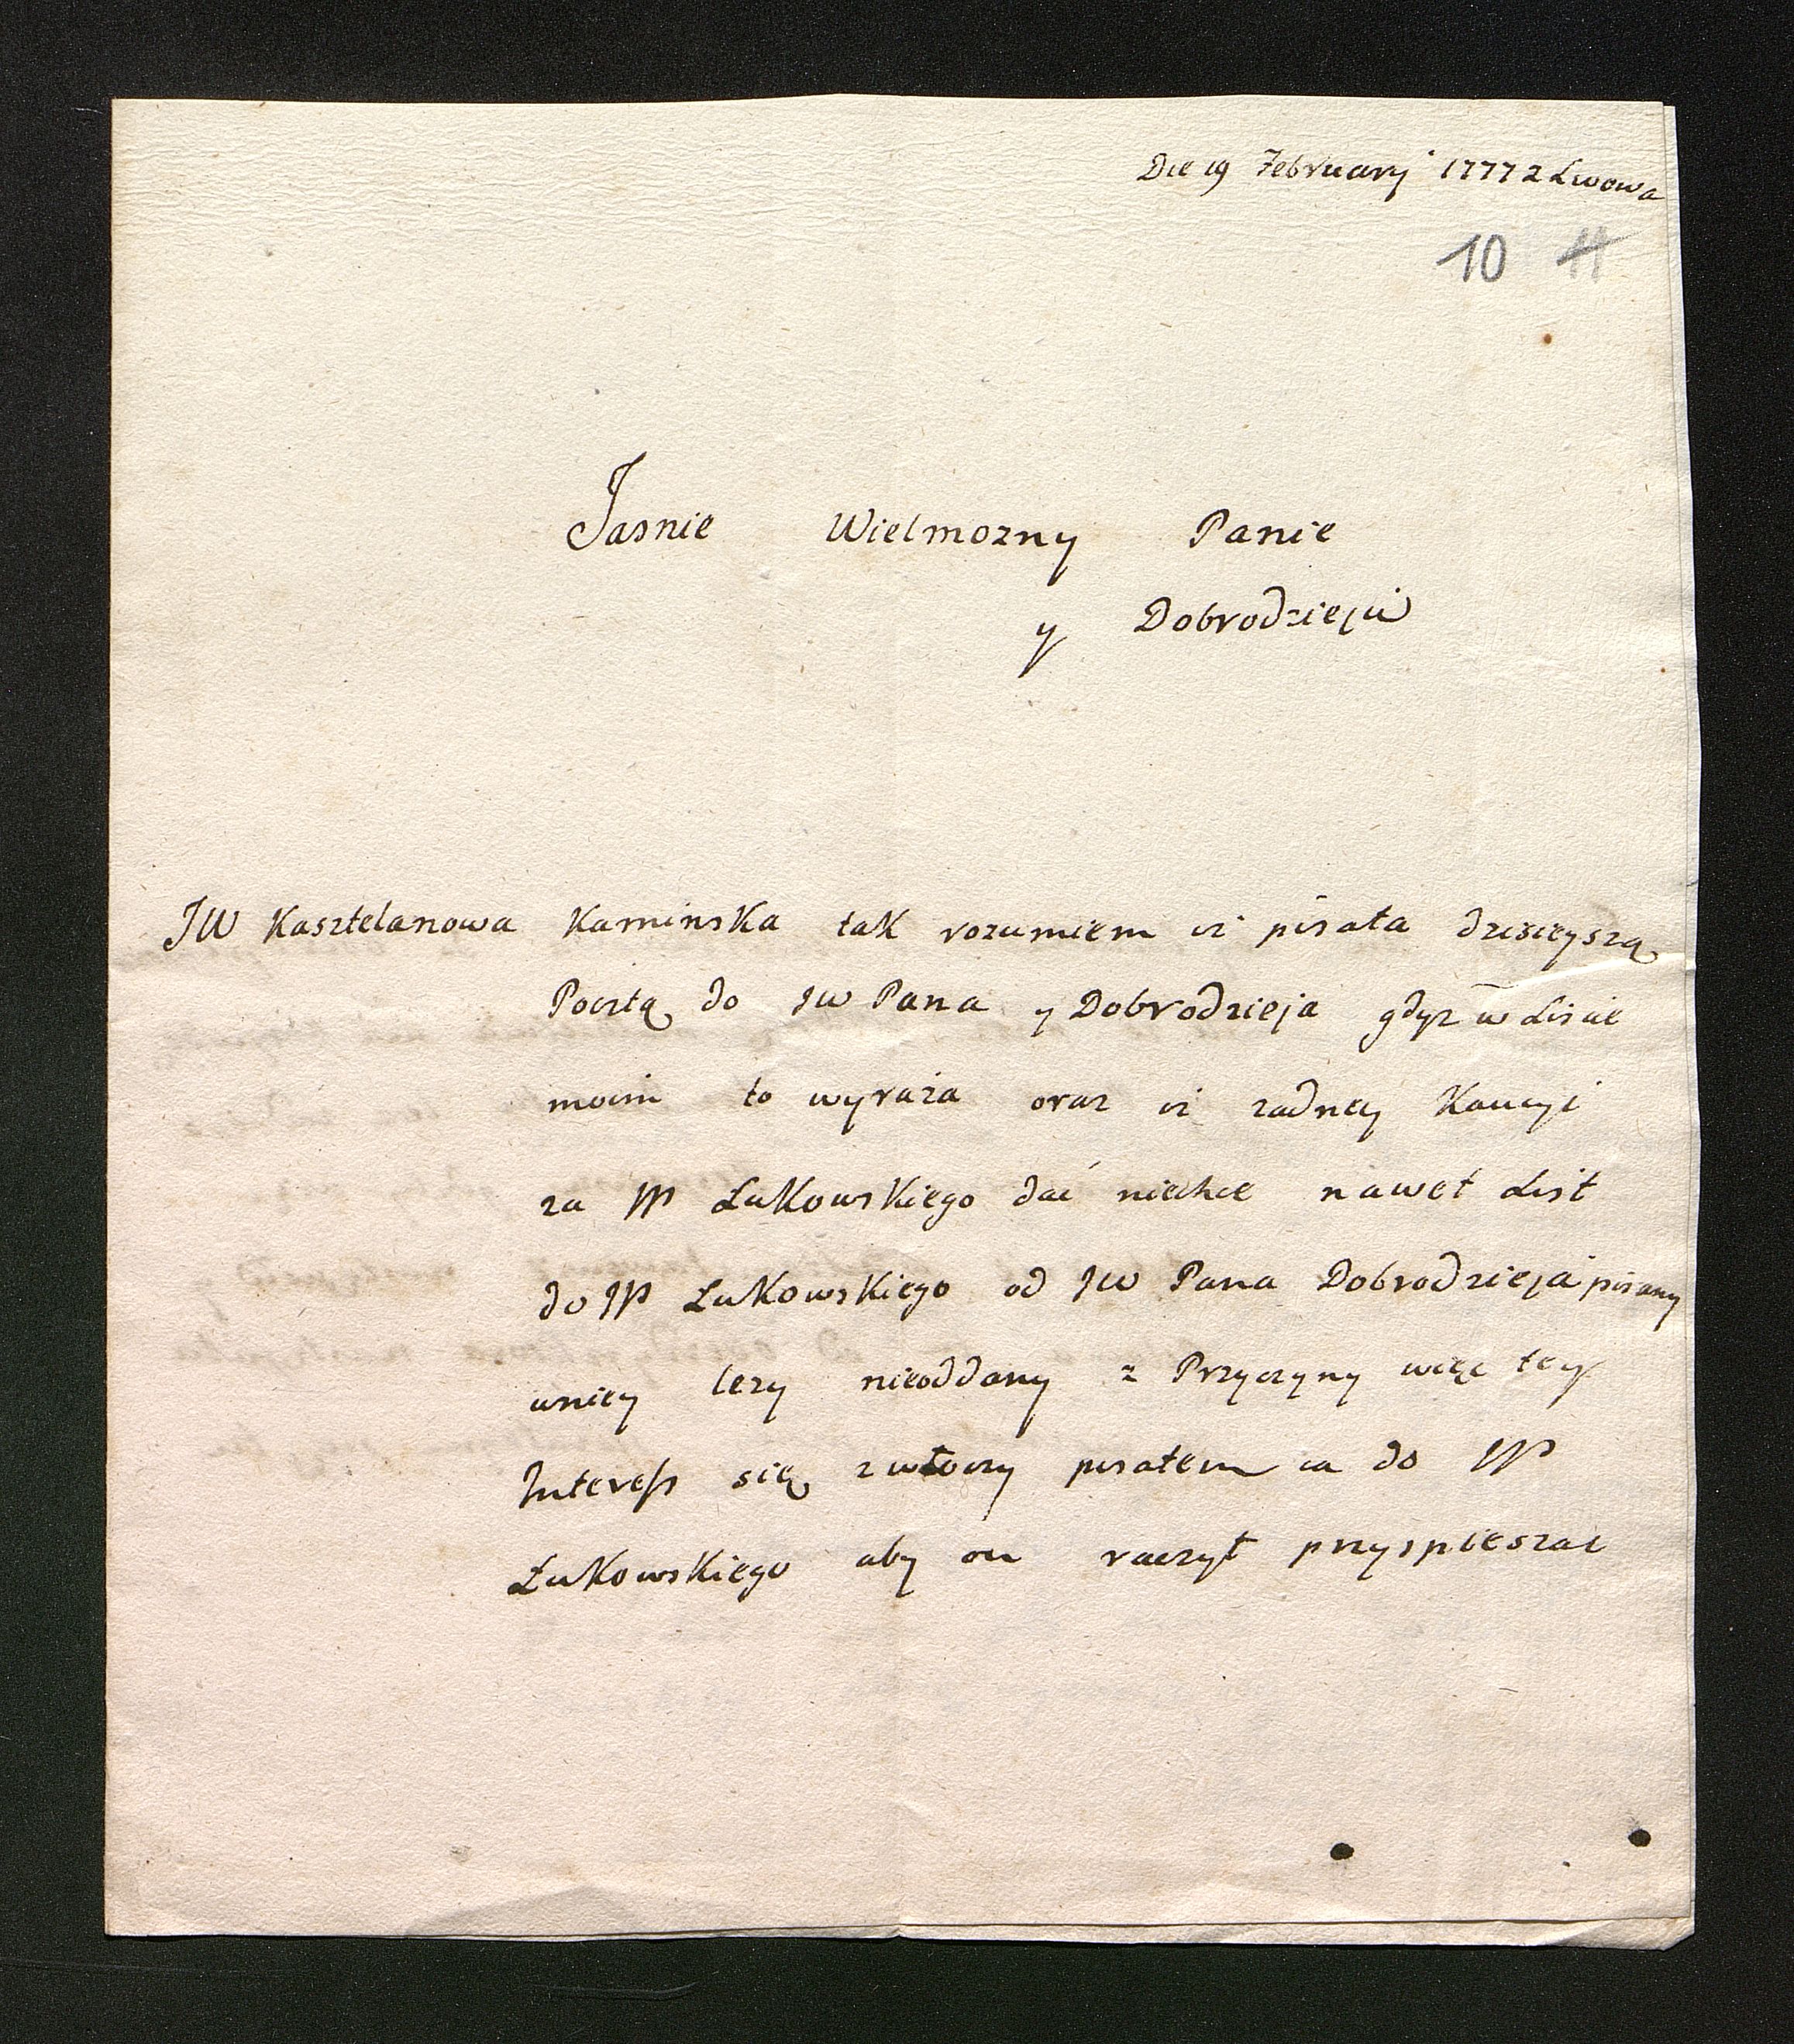 Die 19 Februarij 1777 z Lwowa
10 11
Jasnie Wielmozny Panie
y Dobrodzieju
JW Kasztelanowa Kaminska tak rozumiem iż pisała dzisieyszą
Pocztą do JW Pana y Dobrodzieja gdyz w Liscie
moim to wyraża oraz iż zadney Kaucyi
za JP Łukowskiego dać niechce nawet List
do JP Łukowskiego od JW Pana Dobrodzieja pisany
uniey lezy nieoddany z Przyczyny więc tey
Interess się zwłoczy pisałem ia do JP
Łukowskiego aby on raczył przyspieszac